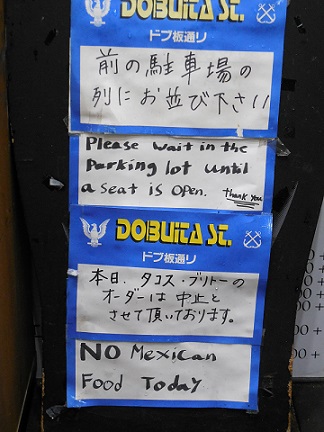 DOBUITA ST.
ドブ板通リ
前の駐車場の
列にお並び下さい
Please wait in the
Parking lot until
a seat is open. thank you
DOBUITA ST.
ドブ板通リ
本日、タコス・ブリトーの
オーダーは中止と
させて頂いております。
NO Mexican
Food Today